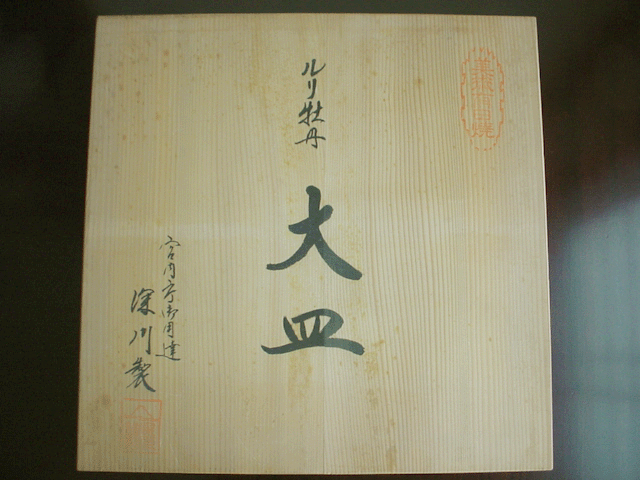 ルリ牡丹
大皿
宮内庁御用達
深川製